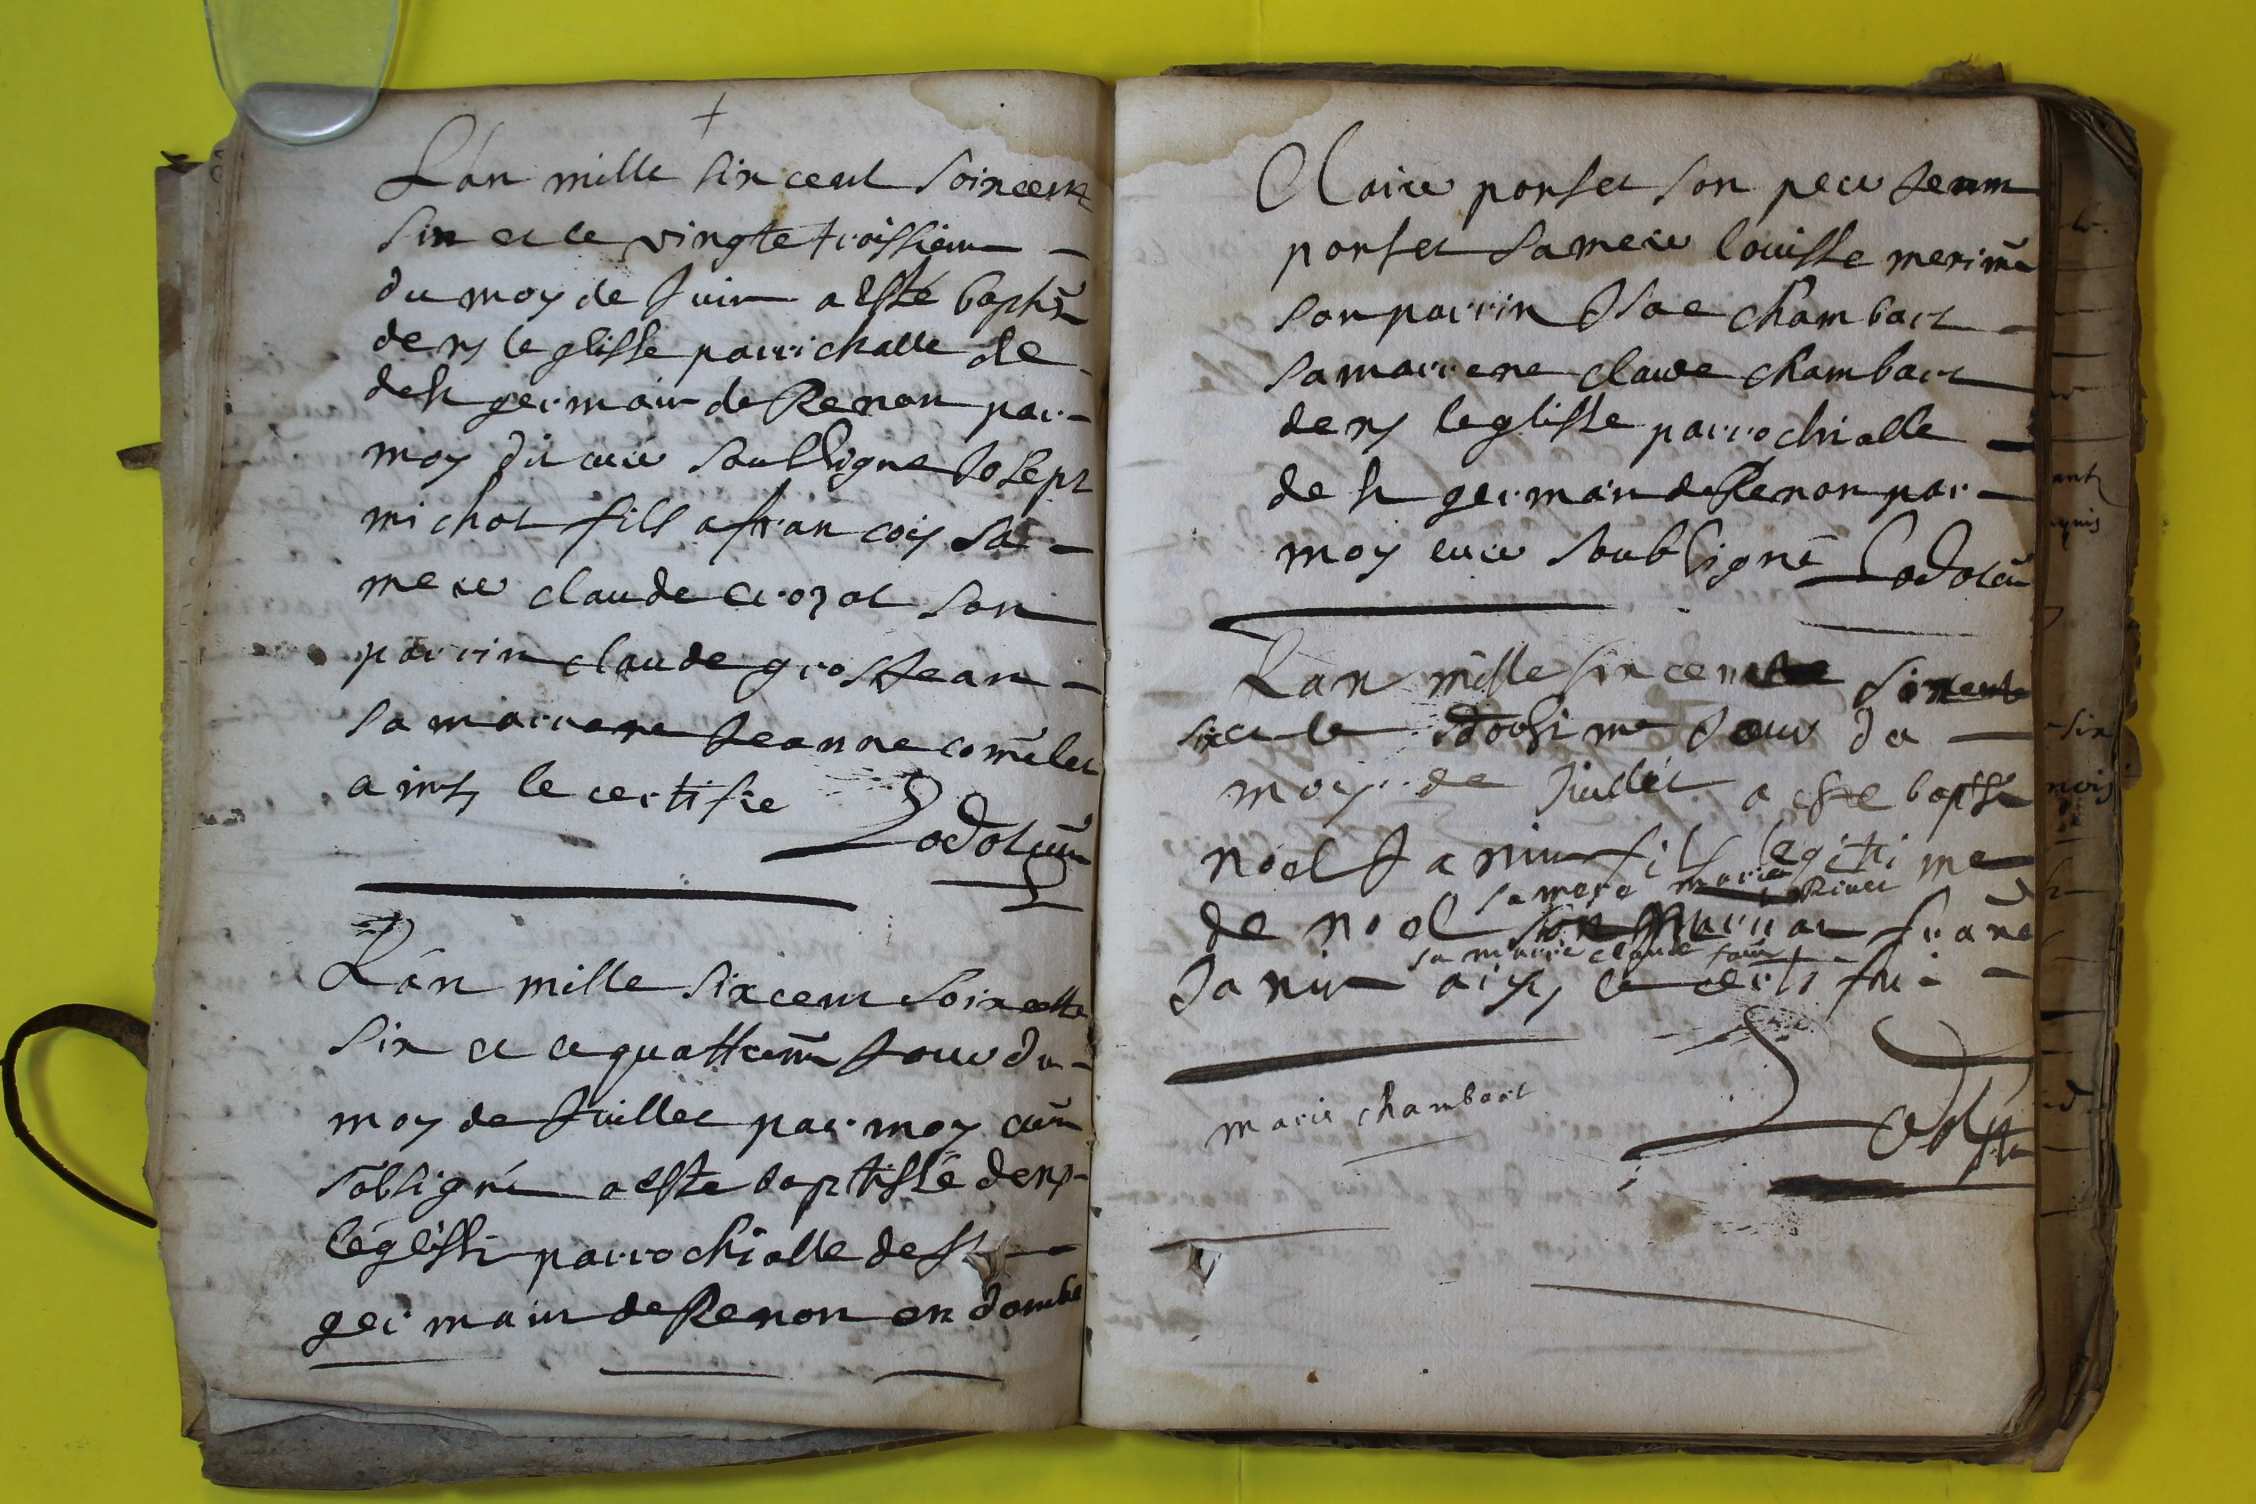 +
Lan mille six cent soixcente
six et le vingte troissiem
du moy de Juin a esté baptisé
dens leglisse parrichalle de
de st germain de Renon par
moy dit curé soubsigne Josept
michot fils a francois sa
mere claude crozat son
parrin claude grosJean
sa marrene Jeanne
ainsy le certifie Lodotum
Lan mille six cent soixcette
six et le quattriem Jour du
moy de Juillet par moy curé
sobsigné a este baptissé dens
léglisse parrochialle de st
germain de Renon en dombe
Claire porset son pere Jenin
porset sa mere louisse
son parrin Isac chambart
sa marrene claude chambart
dens leglisse parrochialle
de st germain de Renon par
moy curé soubsigné Lodotum
Lan mille six cent
six et le Jour du
moys de Juillet a este baptisé
noel Janin fils legitime
sa mere marie
de noel
sa marrie claude
Janin aisy le certifie
marie chambart